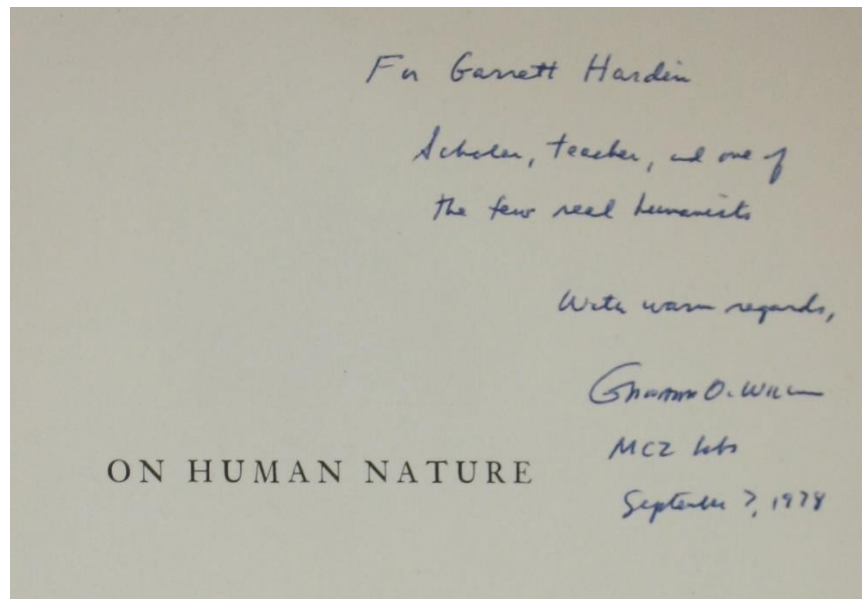 For Garrett Hardin
Scholar, teacher, and one of
the few real humanists
With warm regards,
Edward O. Wilson
MCZ Labs
September 7, 1978
ON HUMAN NATURE